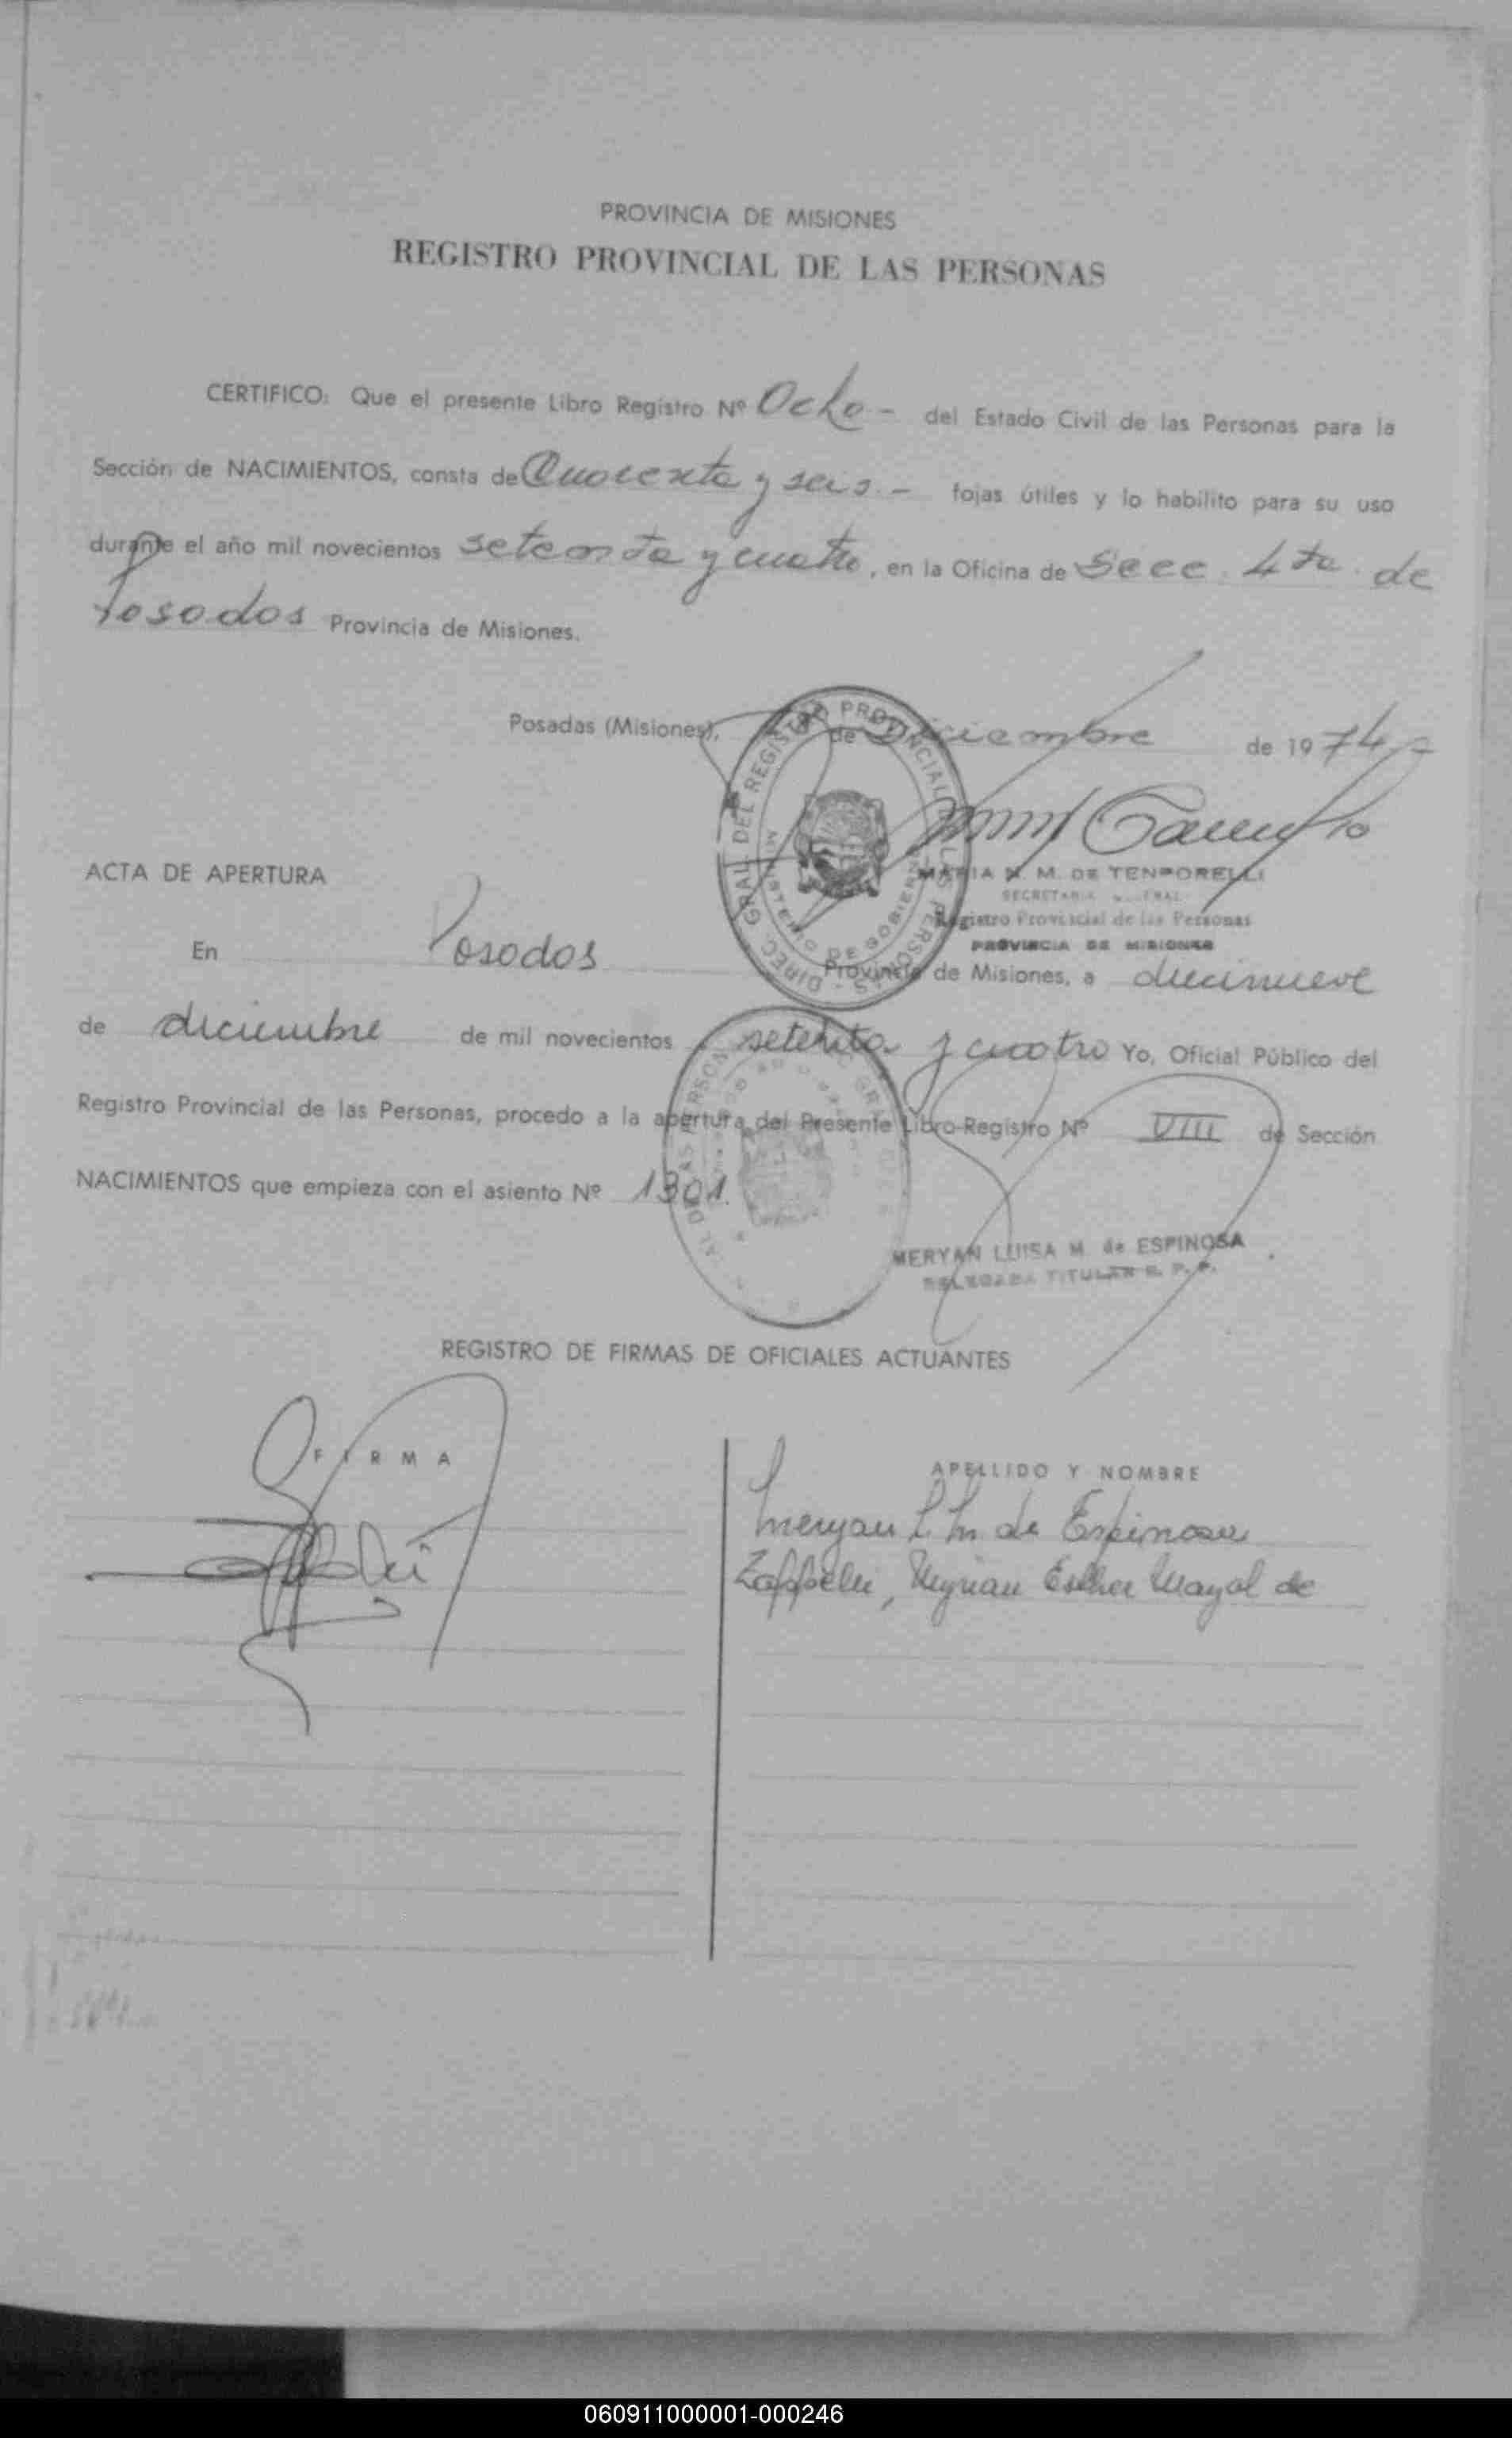 PROVINCIA DE MISIONES
REGISTRO PROVINCIAL DE LAS PERSONAS
CERTIFICO: Que el presente Libro Registro Nº Ocho - del Estado Civil de las Personas para la
Sección de NACIMIENTOS, consta de Cuarenta y seis. - fojas útiles y lo habilito para su uso
durante el año mil novecientos setenta y cuatro, en la Oficina de Secc. 4ta. de
Posadas Provincia de Misiones.
Posadas (Misiones), de Diciembre de 1974
DIREC. GRAL. DEL REGISTRO PROVINCIAL DE LAS PERSONAS
MINISTERIO DE GOBIERNO
MARIA N. M. DE TENPORELLI
SECRETARIA GENERAL
Registro Provincial de las Personas
PROVINCIA DE MISIONES
ACTA DE APERTURA
En Posadas Provincia de Misiones, a diecinueve
de diciembre de mil novecientos setenta y cuatro Yo, Oficial Público del
Registro Provincial de las Personas, procedo a la apertura del Presente Libro-Registro Nº VIII de Sección
NACIMIENTOS que empieza con el asiento Nº 1301.
MERYAN LUISA M. de ESPINOSA
DELEGADA TITULAR R. P. P.
REGISTRO DE FIRMAS DE OFICIALES ACTUANTES
FIRMA
APELLIDO Y NOMBRE
Meryan L. M. de Espinosa
Zappelli, Myrian Esther Mayol de
060911000001-000246